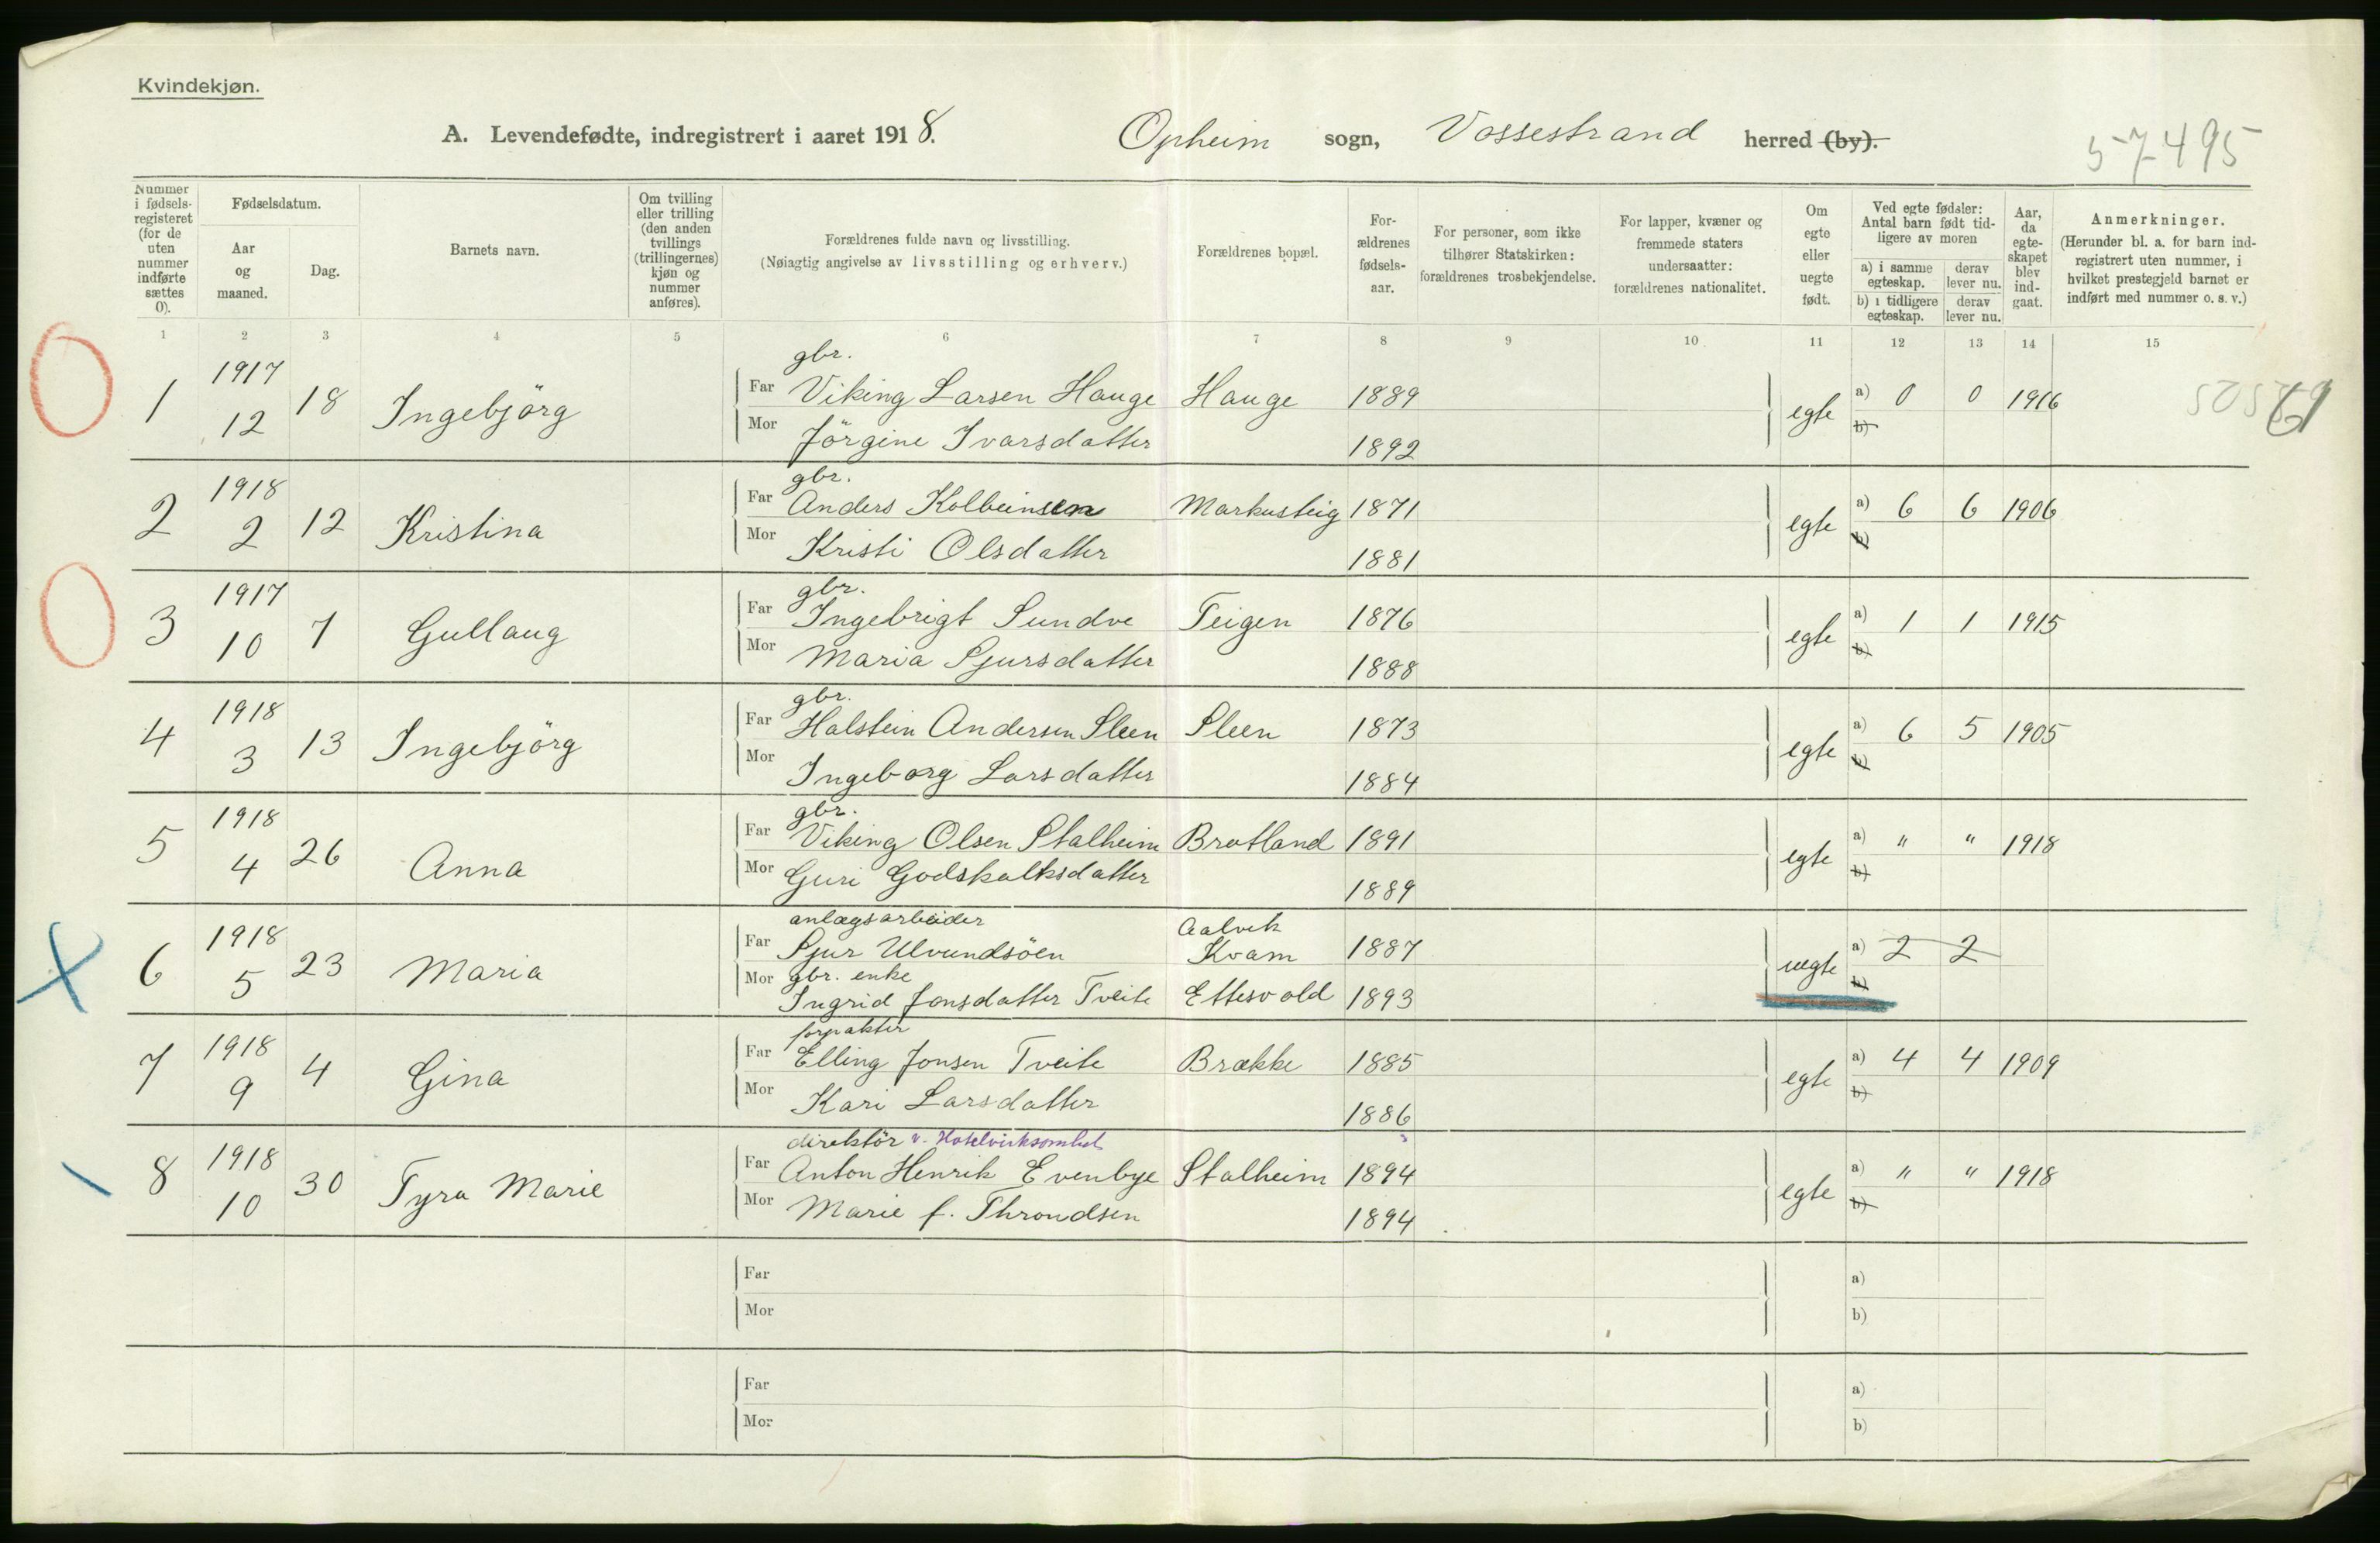 Kvindekjøn.
A. Levendefødte, indregistrert i aaret 1918. Opheim sogn, Vossestrand herred (by).
57495
Nummer i fødselsregisteret (for de uten nummer indførte sættes 0).
Fødselsdatum.
Aar og maaned.
Dag.
Barnets navn.
Om tvilling eller trilling (den anden tvillings (trillingernes) kjøn og nummer anføres).
Forældrenes fulde navn og livsstilling.
(Nøiagtig angivelse av livsstilling og erhverv.)
Forældrenes bopæl.
Forældrenes fødselsaar.
For personer, som ikke tilhører Statskirken: forældrenes trosbekjendelse.
For lapper, kvæner og fremmede staters undersaatter: forældrenes nationalitet.
Om egte eller uegte født.
Ved egte fødsler: Antal barn født tidligere av moren
a) i samme egteskap. derav lever nu.
b) i tidligere egteskap. derav lever nu.
Aar, da egteskapet blev indgaat.
Anmerkninger.
(Herunder bl. a. for barn indregistrert uten nummer, i hvilket prestegjeld barnet er indført med nummer o. s. v.)
1 2 3 4 5 6 7 8 9 10 11 12 13 14 15
gbr.
1 1917 12 18 Ingebjörg Far Viking Larsen Hauge Hauge 1889 egte a) 0 0 1916
Mor Jörgine Ivarsdatter 1892 b)
gbr.
2 1918 2 12 Kristina Far Anders Kolbeinsen Markusteig 1871 egte a) 6 6 1906
Mor Kristi Olsdatter 1881 b)
gbr.
3 1917 10 7 Gullaug Far Ingebrigt Sundve Teigen 1876 egte a) 1 1 1915
Mor Maria Sjursdatter 1888 b)
gbr.
4 1918 3 13 Ingebjörg Far Halstein Andersen Sleen Sleen 1873 egte a) 6 5 1905
Mor Ingeborg Larsdatter 1884 b)
gbr.
5 1918 4 26 Anna Far Viking Olsen Stalheim Brotland 1891 egte a) " " 1918
Mor Guri Godskalksdatter 1889 b)
anlægsarbeider Aalvik
6 1918 5 23 Maria Far Sjur Ulvundsöen Kvam 1887 uegte a) 2 2
gbr. enke
Mor Ingrid Jonsdatter Tveite Ettesvold 1893 b)
forpakter
7 1918 9 4 Gina Far Elling Jonsen Tveite Brække 1885 egte a) 4 4 1909
Mor Kari Larsdatter 1886 b)
direktör v. Hotelvirksomhet
8 1918 10 30 Tyra Marie Far Anton Henrik Evenbye Stalheim 1894 egte a) " " 1918
Mor Marie f. Throndsen 1894 b)
Far a)
Mor b)
Far a)
Mor b)